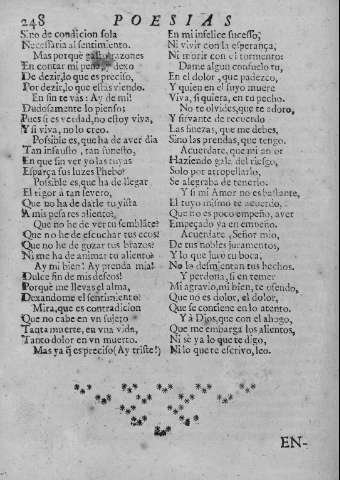 248 POESIAS
Sino de condicion sola
Necessaria al sentimiento.
Mas porquè gasto razones
En contar mi pena, y dexo
De dezir, lo que es preciso,
Por dezir, lo que estàs viendo.
En fin te vàs: Ay de mi!
Dudosamente lo pienso:
Pues si es verdad, no estoy viva,
Y si viva, no lo creo.
Possible es, que ha de aver dia
Tan infausto, tan funesto,
En que sin ver yo las tuyas
Esparça sus luzes Phebo?
Possible es, que ha de llegar
El rigor à tan severo,
Que no ha de darle tu vista
A mis pesares aliento?
Que no he de ver tu semblãte?
Que no he de escuchar tus ecos?
Que no he de gozar tus brazos?
Ni me ha de animar tu aliento?
Ay mi bien! Ay prenda mia!
Dulce fin de mis deseos!
Porquè me llevas el alma,
Dexandome el sentimiento?
Mira, que es contradicion
Que no cabe en vn sujeto
Tanta muerte, en vna vida,
Tanto dolor en vn muerto.
Mas ya q̃ es preciso (Ay triste!)
En mi infelice sucesso,
Ni vivir con la esperança,
Ni morir con el tormento:
Dame algun consuelo tu,
En el dolor, que padezco,
Y quien en el suyo muere
Viva, si quiera, en tu pecho.
No te olvides, que te adoro,
Y sirvante de recuerdo
Las finezas, que me debes,
Sino las prendas, que tengo.
Acuerdate, que mi amor
Haziendo gala del riesgo,
Solo por atropellarlo,
Se alegraba de tenerlo.
Y si mi Amor no es bastante,
El tuyo mismo te acuerdo,
Que no es poco empeño, aver
Empeçado ya en empeño.
Acuerdate, Señor mio,
De tus nobles juramentos,
Y lo que jurò tu boca,
No lo desmientan tus hechos.
Y perdona, si en temer
Mi agravio, mi bien, te ofendo,
Que no es dolor, el dolor,
Que se contiene en lo atento.
Y à Dios, que con el ahogo,
Que me embarga los alientos,
Ni sè ya lo que te digo,
Ni lo que te escrivo, leo.
EN-